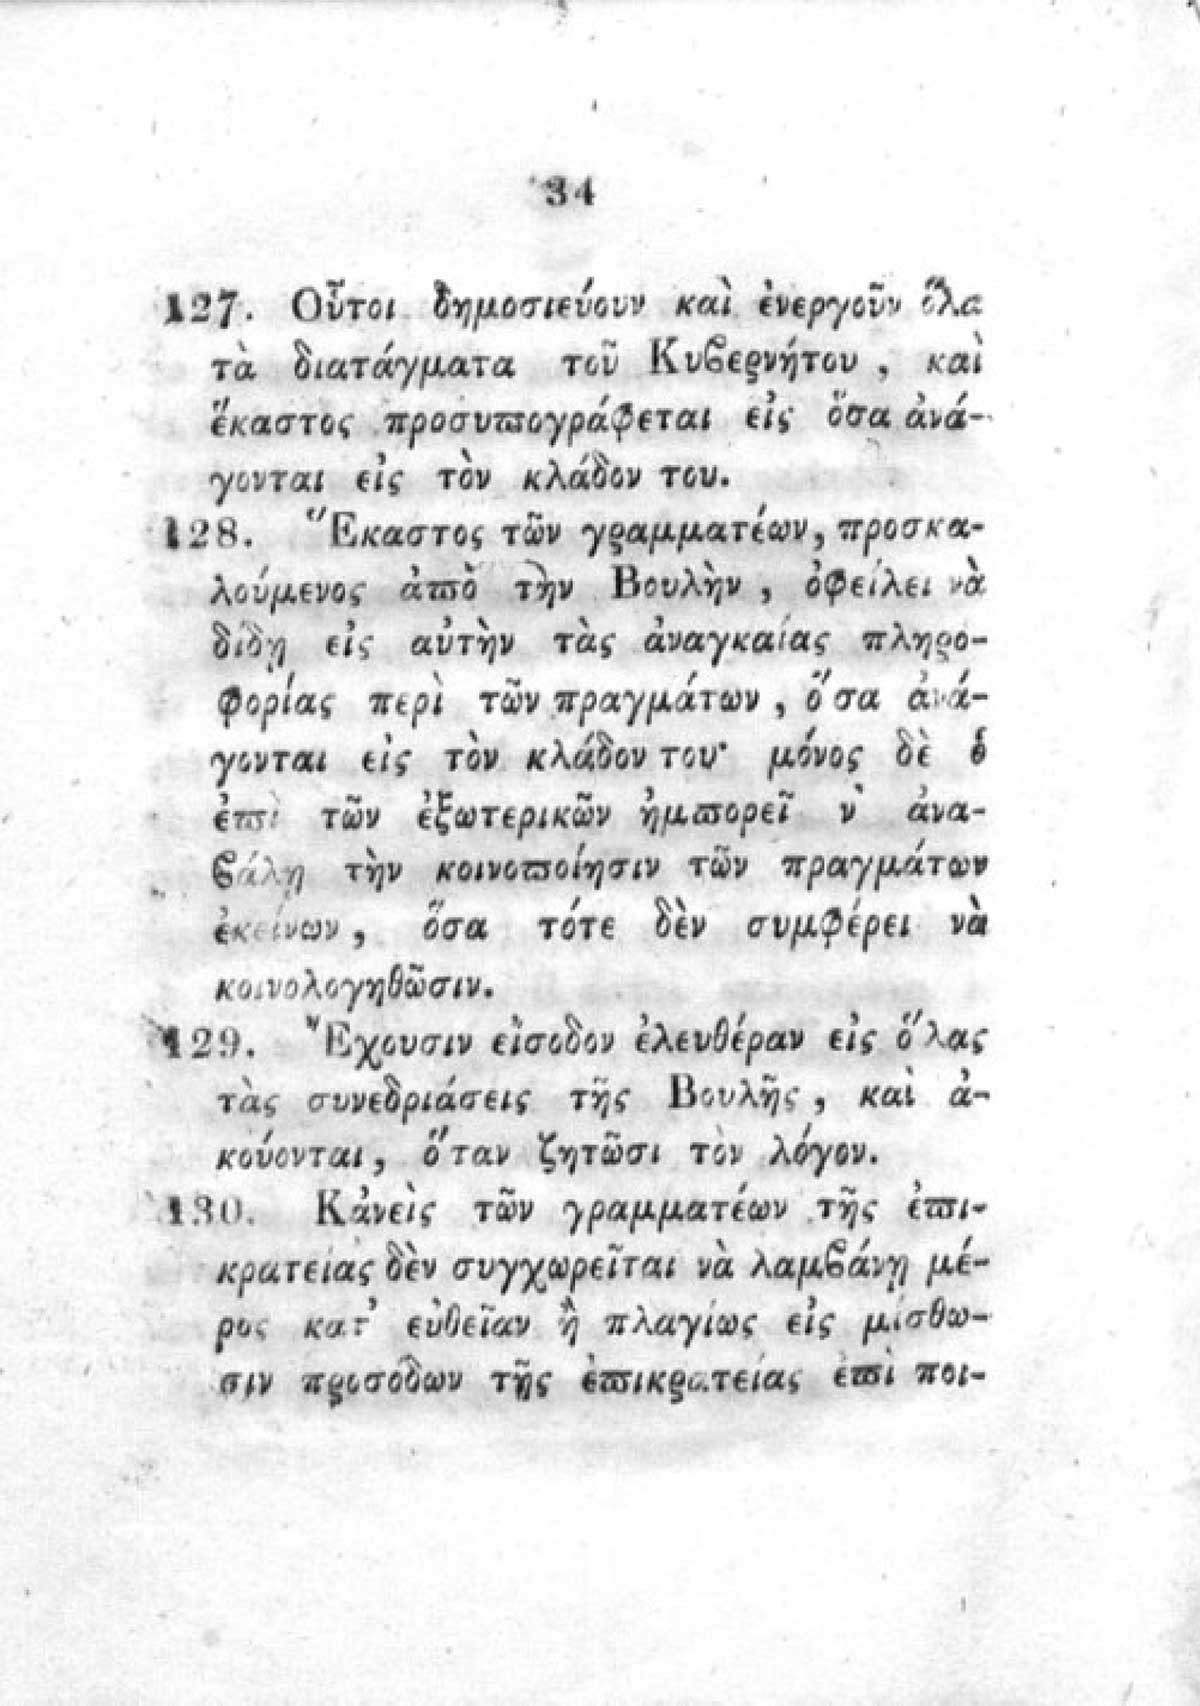 34
127. Οὗτοι δημοσιεύουν καὶ ἐνεργοῦν ὅλα
τὰ διατάγματα τοῦ Κυϐερνήτου, καὶ
ἕκαστος προσυϖογράφεται εἰς ὅσα ἀνά-
γονται εἰς τὸν κλάδον του.
128. Ἕκαστος τῶν γραμματέων, προσκα-
λούμενος ἀϖὸ τὴν Βουλὴν, ὀφείλει νὰ
δίδῃ εἰς αὐτὴν τὰς ἀναγκαίας πληρο-
φορίας περὶ τῶν πραγμάτων, ὅσα ἀνά-
γονται εἰς τὸν κλάδον του· μόνος δὲ ὁ
ἐϖὶ τῶν ἐξωτερικῶν ἠμϖορεῖ ν' ἀνα-
ϐάλῃ τὴν κοινοϖοίησιν τῶν πραγμάτων
ἐκείνων, ὅσα τότε δὲν συμφέρει νὰ
κοινολογηθῶσιν.
129. Ἔχουσιν εἴσοδον ἐλευθέραν εἰς ὅλας
τὰς συνεδριάσεις τῆς Βουλῆς, καὶ ἀ-
κούονται, ὅταν ζητῶσι τὸν λόγον.
130. Κἀνεὶς τῶν γραμματέων τῆς ἐϖι-
κρατείας δὲν συγχωρεῖται νὰ λαμϐάνῃ μέ-
ρος κατ' εὐθεῖαν ἢ πλαγίως εἰς μίσθω-
σιν προσόδων τῆς ἐϖικρατείας ἐϖὶ ποι-